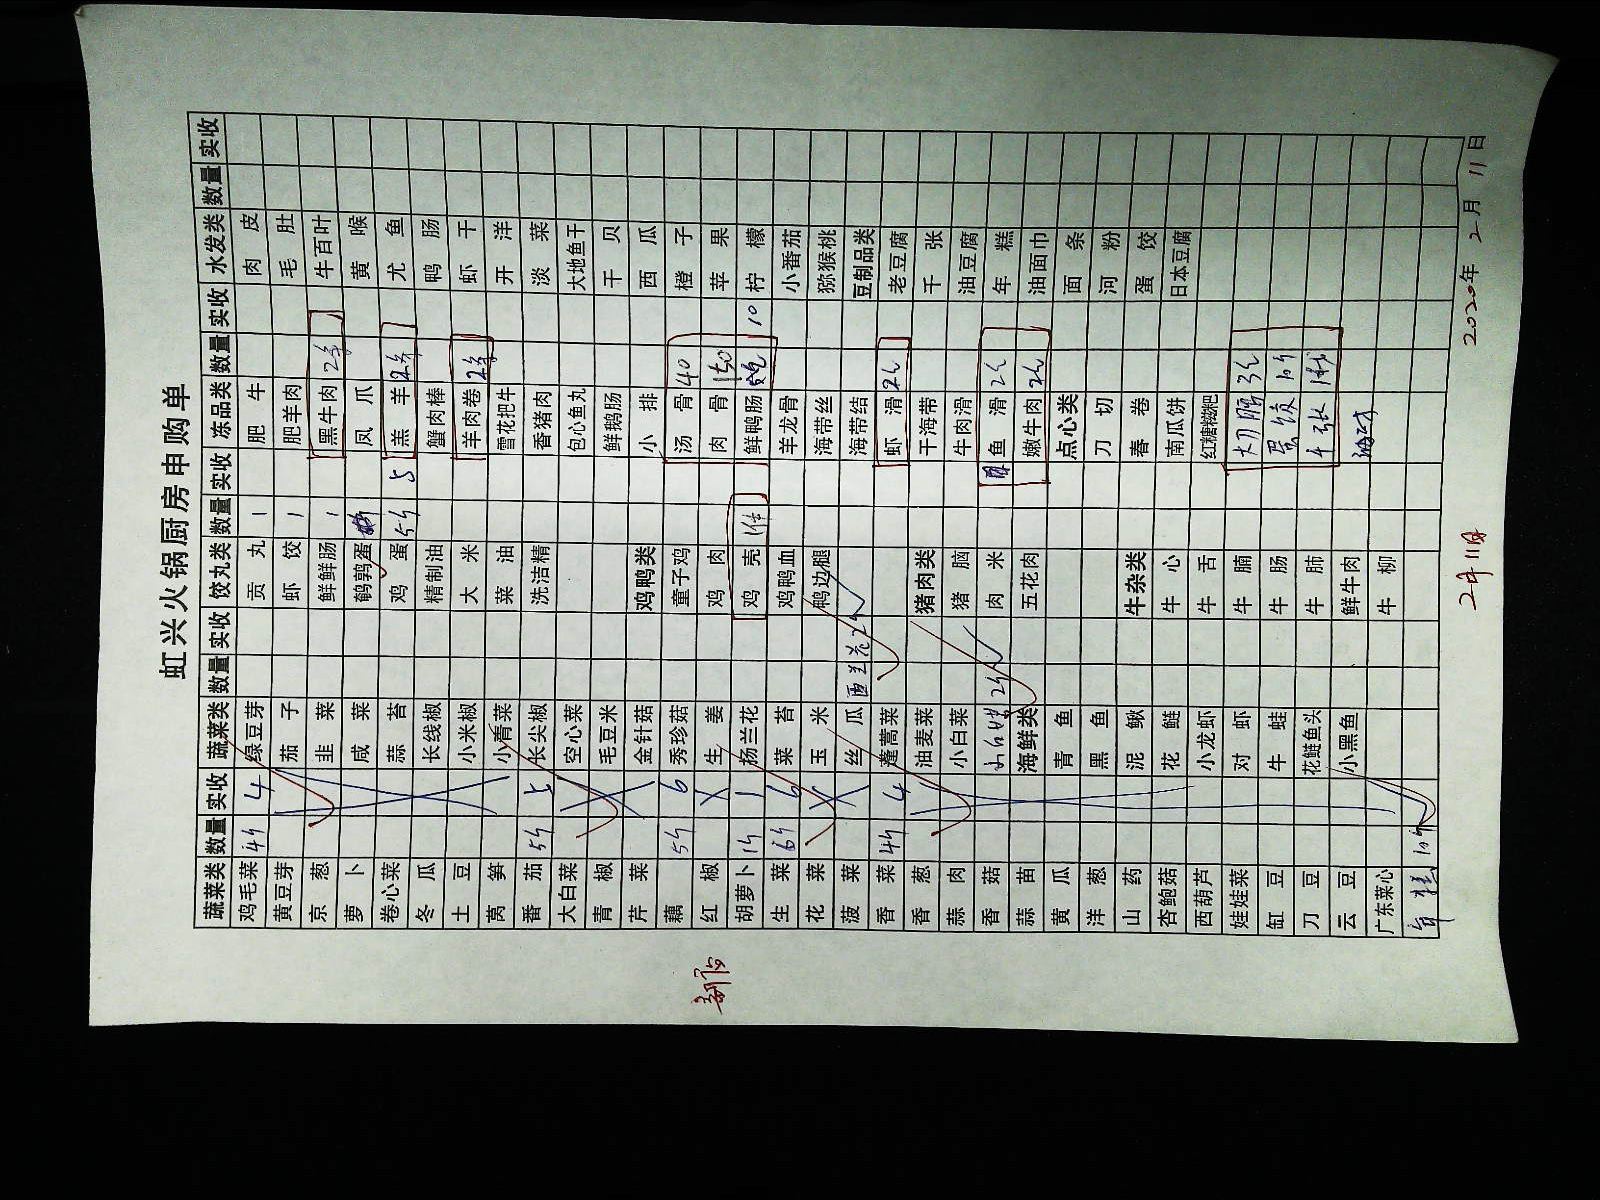 虹兴火锅厨房申购单
蔬菜类 数量 实收 蔬菜类 数量 实收 饺丸类 数量 实收 冻品类 数量 实收 水发类 数量 实收
鸡毛菜 4斤 4 绿豆芽 贡丸 1 肥牛 肉皮
黄豆芽 茄子 虾饺 1 肥羊肉 毛肚
京葱 韭菜 鲜鲜肠 1 黑牛肉 2条 牛百叶
萝卜 咸菜 鹌鹑蛋 凤爪 黄喉
卷心菜 蒜苔 鸡蛋 5斤 5 羔羊 2条 尤鱼
冬瓜 长线椒 精制油 蟹肉棒 鸭肠
土豆 小米椒 大米 羊肉卷 2条 虾干
莴笋 小青菜 菜油 雪花把牛 开洋
番茄 5斤 长尖椒 洗洁精 香猪肉 淡菜
大白菜 空心菜 包心鱼丸 大地鱼干
青椒 毛豆米 鲜鹅肠 干贝
芹菜 金针菇 鸡鸭类 小排 西瓜
藕 5斤 6 秀珍菇 童子鸡 汤骨 40 橙子
红椒 生姜 鸡肉 肉骨 150 苹果
胡萝卜 1斤 1 扬兰花 鸡壳 1件 鲜鸭肠 10 柠檬
生菜 6斤 6 菜苔 鸡鸭血 羊龙骨 小番茄
花菜 玉米 鸭边腿 海带丝 猕猴桃
菠菜 丝瓜 西兰花 2斤 海带结 豆制品类
香菜 4斤 4 蓬蒿菜 虾滑 老豆腐
香葱 油麦菜 猪肉类 干海带 千张
蒜肉 小白菜 猪脑 牛肉滑 油豆腐
香菇 2斤 肉米 鱼滑 年糕
蒜苗 海鲜类 五花肉 嫩牛肉 油面巾
黄瓜 青鱼 点心类 面条
洋葱 黑鱼 刀切 河粉
山药 泥鳅 牛杂类 春卷 蛋饺
杏鲍菇 花鲢 牛心 南瓜饼 日本豆腐
西葫芦 小龙虾 牛舌 红糖糍粑
娃娃菜 对虾 牛腩
缸豆 牛蛙 牛肠 蛋饺 10斤
刀豆 花鲢鱼头 牛肺 千张
云豆 小黑鱼 鲜牛肉
广东菜心 牛柳
年糕 10斤
2020年 2月 11日
2月11日